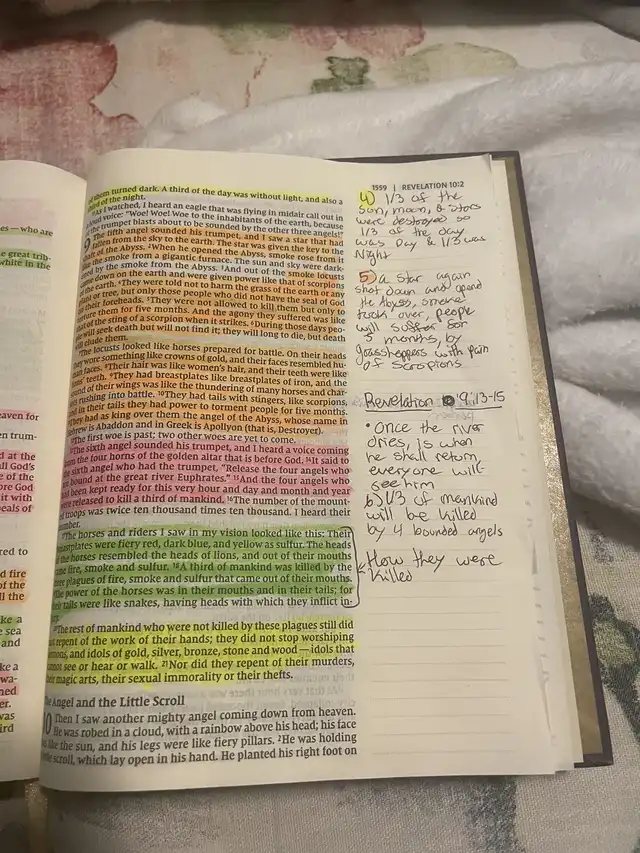 s — who are
e great trib-
white in the
eaven for
en trum-
d at the
ll God's
e of the
fore God
it with
peals of
red to
d fire
of the
ll the
ke a
e sea
and
ke a
wa-
ned
er.
was
ird
of them turned dark. A third of the day was without light, and also a
third of the night.
As I watched, I heard an eagle that was flying in midair call out in
loud voice: "Woe! Woe! Woe to the inhabitants of the earth, because
the trumpet blasts about to be sounded by the other three angels!"
9 The fifth angel sounded his trumpet, and I saw a star that had
fallen from the sky to the earth. The star was given the key to the
shaft of the Abyss. 2When he opened the Abyss, smoke rose from it
the smoke from a gigantic furnace. The sun and sky were dark-
ed by the smoke from the Abyss. 3And out of the smoke locusts
came down on the earth and were given power like that of scorpions
the earth. 4They were told not to harm the grass of the earth or any
plant or tree, but only those people who did not have the seal of God
their foreheads. 5They were not allowed to kill them but only to
torture them for five months. And the agony they suffered was like
that of the sting of a scorpion when it strikes. 6During those days peo-
will seek death but will not find it; they will long to die, but death
will elude them.
The locusts looked like horses prepared for battle. On their heads
they wore something like crowns of gold, and their faces resembled hu-
man faces. 8Their hair was like women's hair, and their teeth were like
ns' teeth. 9They had breastplates like breastplates of iron, and the
sound of their wings was like the thundering of many horses and char-
rushing into battle. 10They had tails with stingers, like scorpions,
and in their tails they had power to torment people for five months.
They had as king over them the angel of the Abyss, whose name in
Hebrew is Abaddon and in Greek is Apollyon (that is, Destroyer).
The first woe is past; two other woes are yet to come.
The sixth angel sounded his trumpet, and I heard a voice coming
from the four horns of the golden altar that is before God. 14It said to
the sixth angel who had the trumpet, "Release the four angels who
are bound at the great river Euphrates." 15And the four angels who
had been kept ready for this very hour and day and month and year
were released to kill a third of mankind. 16The number of the mount-
ed troops was twice ten thousand times ten thousand. I heard their
number.
The horses and riders I saw in my vision looked like this: Their
breastplates were fiery red, dark blue, and yellow as sulfur. The heads
of the horses resembled the heads of lions, and out of their mouths
came fire, smoke and sulfur. 18A third of mankind was killed by the
three plagues of fire, smoke and sulfur that came out of their mouths.
The power of the horses was in their mouths and in their tails; for
their tails were like snakes, having heads with which they inflict in-
20The rest of mankind who were not killed by these plagues still did
not repent of the work of their hands; they did not stop worshiping
demons, and idols of gold, silver, bronze, stone and wood — idols that
cannot see or hear or walk. 21Nor did they repent of their murders,
their magic arts, their sexual immorality or their thefts.
The Angel and the Little Scroll
10 Then I saw another mighty angel coming down from heaven.
He was robed in a cloud, with a rainbow above his head; his face
was like the sun, and his legs were like fiery pillars. 2He was holding
a little scroll, which lay open in his hand. He planted his right foot on
1559 | REVELATION 10:2
4) 1/3 of the
Sun, moon, & stars
were destroyed so
1/3 of the day
was Day & 1/3 was
Night
5) a star again
shot down and opend
the Abyss, smoke
took over, people
will suffer for
5 months, by
grasshoppers with pain
of Scropions
Revelation 9:13-15
• Once the river
dries, is when
he shall return
everyone will
see him
b) 1/3 of mankind
will be killed
by 4 bounded angels
How they were
killed